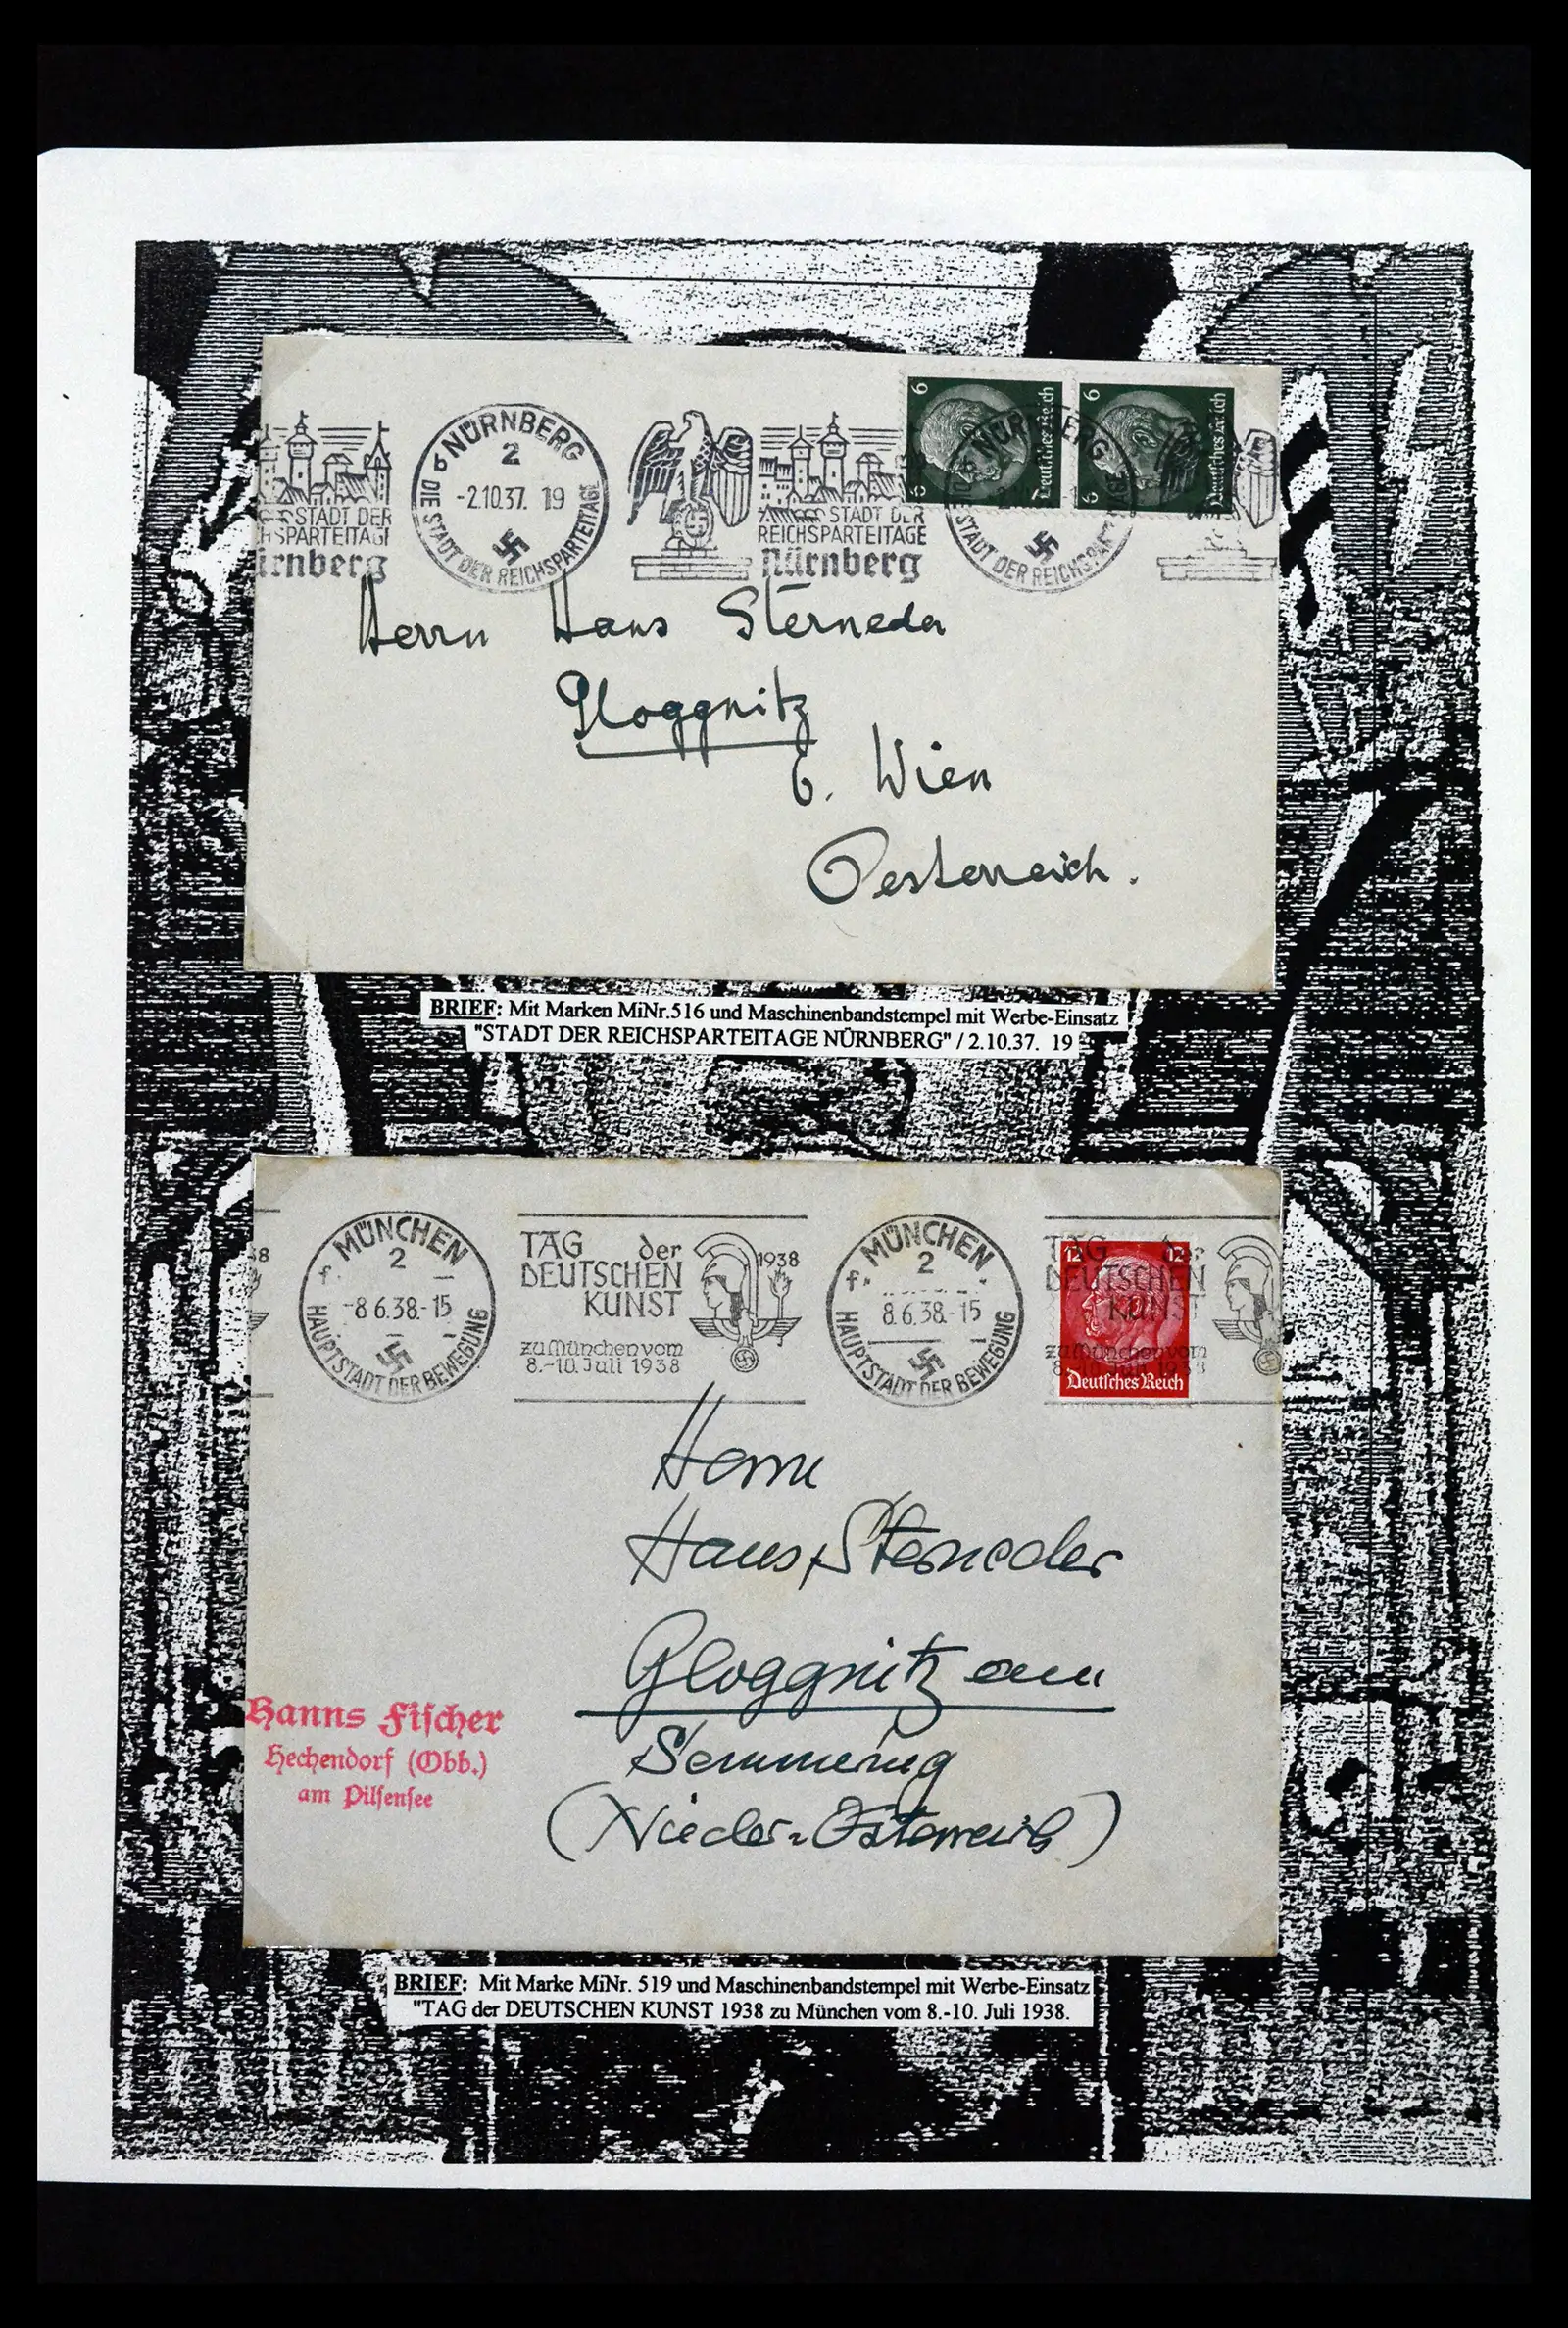 NÜRNBERG
2
b
-2.10.37. 19
DIE STADT DER REICHSPARTEITAGE
STADT DER
HSPARTEITAGE
ürnberg
STADT DER
REICHSPARTEITAGE
Nürnberg
6 6
Deutsches Reich
6 6
Deutsches Reich
NÜRNBERG
STADT DER REICHSPARTEITAGE
Herrn Hans Sterneder
Gloggnitz
b. Wien
Oesterreich.
BRIEF: Mit Marken MiNr.516 und Maschinenbandstempel mit Werbe-Einsatz
"STADT DER REICHSPARTEITAGE NÜRNBERG" / 2.10.37. 19
38
MÜNCHEN
2
f.
-8 6.38-15
HAUPTSTADT DER BEWEGUNG
TAG der
DEUTSCHEN
KUNST
1938
zu München vom
8.-10. Juli 1938
MÜNCHEN
2
f.
8.6.38.-15
HAUPTSTADT DER BEWEGUNG
TAG der
DEUTSCHEN
KUNST
zu München vom
8.-10. Juli 1938
12 12
Deutsches Reich
Herrn
Hans Sterneder
Gloggnitz am
Semmering
(Nieder-Österreich)
Hanns Fischer
Hechendorf (Obb.)
am Pilsensee
BRIEF: Mit Marke MiNr. 519 und Maschinenbandstempel mit Werbe-Einsatz
"TAG der DEUTSCHEN KUNST 1938 zu München vom 8.-10. Juli 1938.